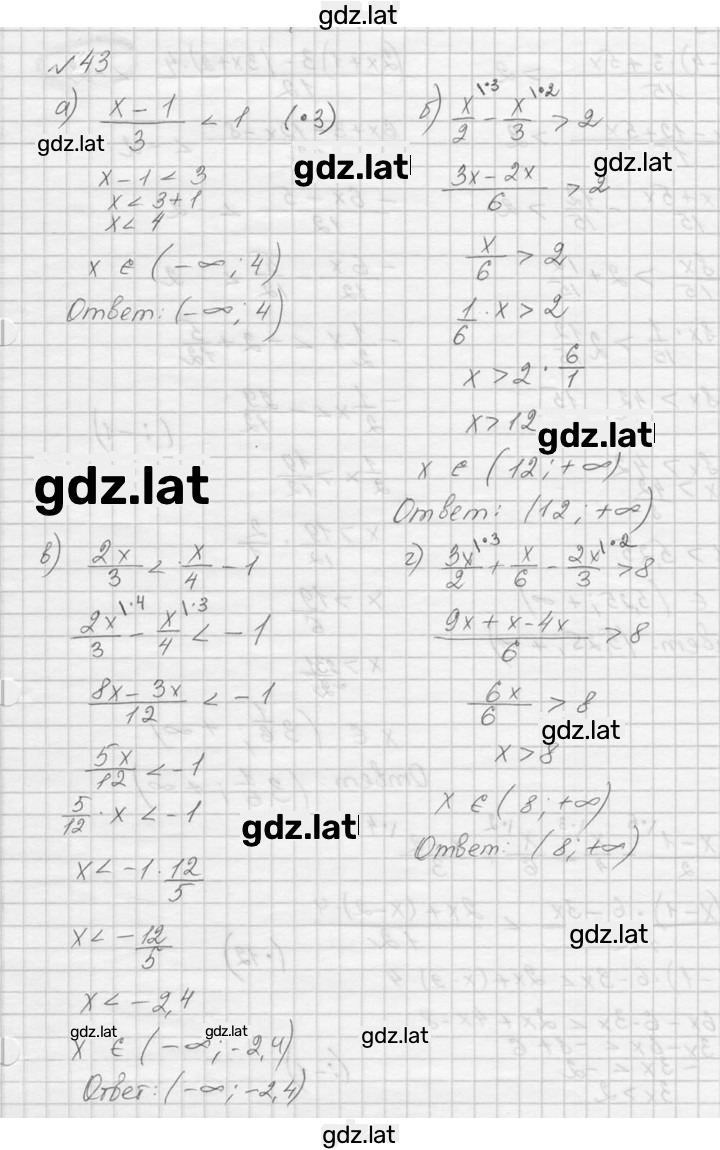 gdz.lat
№43
а) (x-1)/3 < 1 (·3)
gdz.lat
gdz.lat
x-1 < 3
x < 3+1
x < 4
x ∈ (-∞; 4)
Ответ: (-∞; 4)
б) x/2 |·3 - x/3 |·2 > 2
gdz.lat
(3x-2x)/6 > 2
x/6 > 2
1/6 · x > 2
x > 2 · 6/1
x > 12
gdz.lat
x ∈ (12; +∞)
Ответ: (12; +∞)
gdz.lat
в) 2x/3 < x/4 - 1
2x/3 |·4 - x/4 |·3 < -1
(8x-3x)/12 < -1
5x/12 < -1
5/12 · x < -1
gdz.lat
x < -1 · 12/5
x < -12/5
x < -2,4
gdz.lat
gdz.lat
x ∈ (-∞; -2,4)
Ответ: (-∞; -2,4)
г) 3x/2 |·3 + x/6 - 2x/3 |·2 > 8
(9x+x-4x)/6 > 8
6x/6 > 8
gdz.lat
x > 8
x ∈ (8; +∞)
Ответ: (8; +∞)
gdz.lat
gdz.lat
gdz.lat